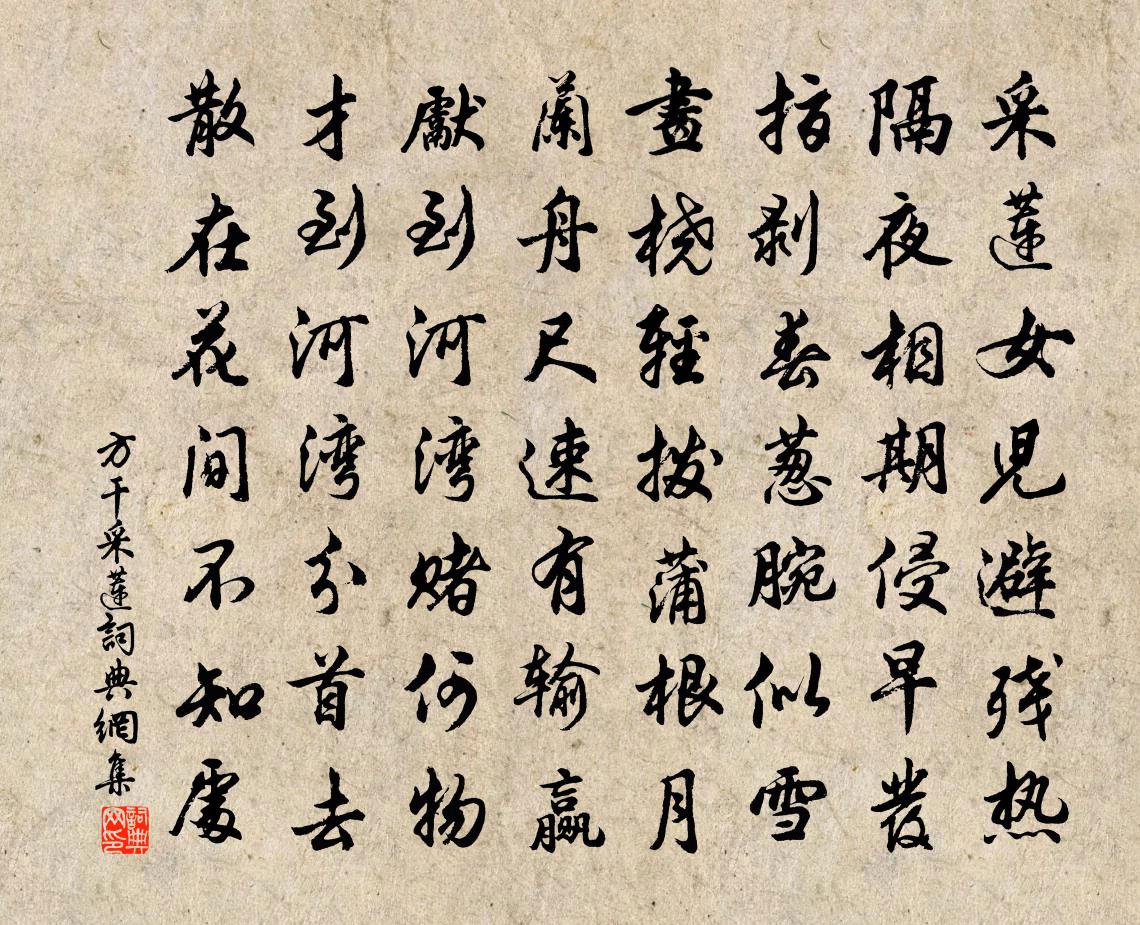 采蓮女児避残热
隔夜相期侵早發
指剥春葱腕似雪
畫桡輕拨蒲根月
蘭舟尺速有输赢
獻到河湾赌何物
才到河湾分首去
散在花间不知處
方干采蓮詞典網集
詞典网印